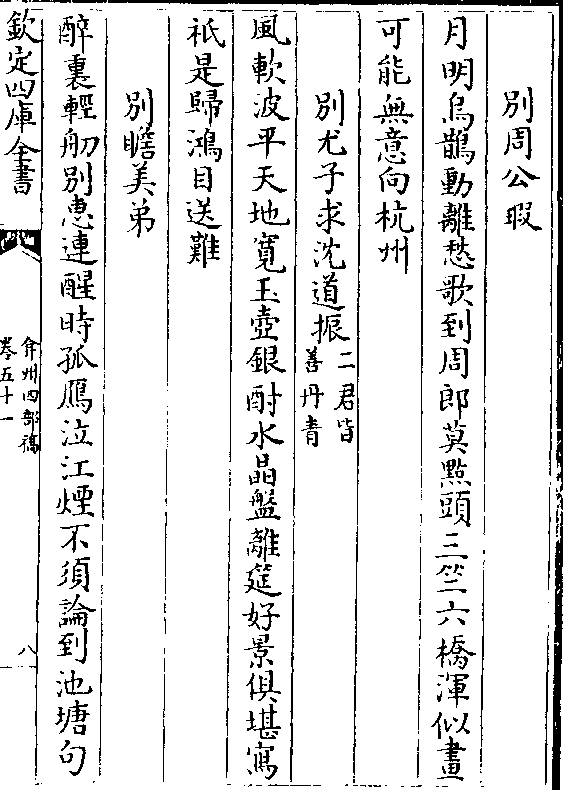 別周公瑕
月明烏鵲動離愁歌到周郎莫㸃頭三竺六橋渾似畫
可能無意向杭州
別尤子求沈道振二君皆善丹青
風軟波平天地寛玉壺銀酎水晶盤離筵好景俱堪寫
祇是歸鴻目送難
別瞻美弟
醉裏輕舠別惠連醒時孤鴈泣江煙不須論到池塘句
欽定四庫全書
弇州四部稿
卷五十一
八